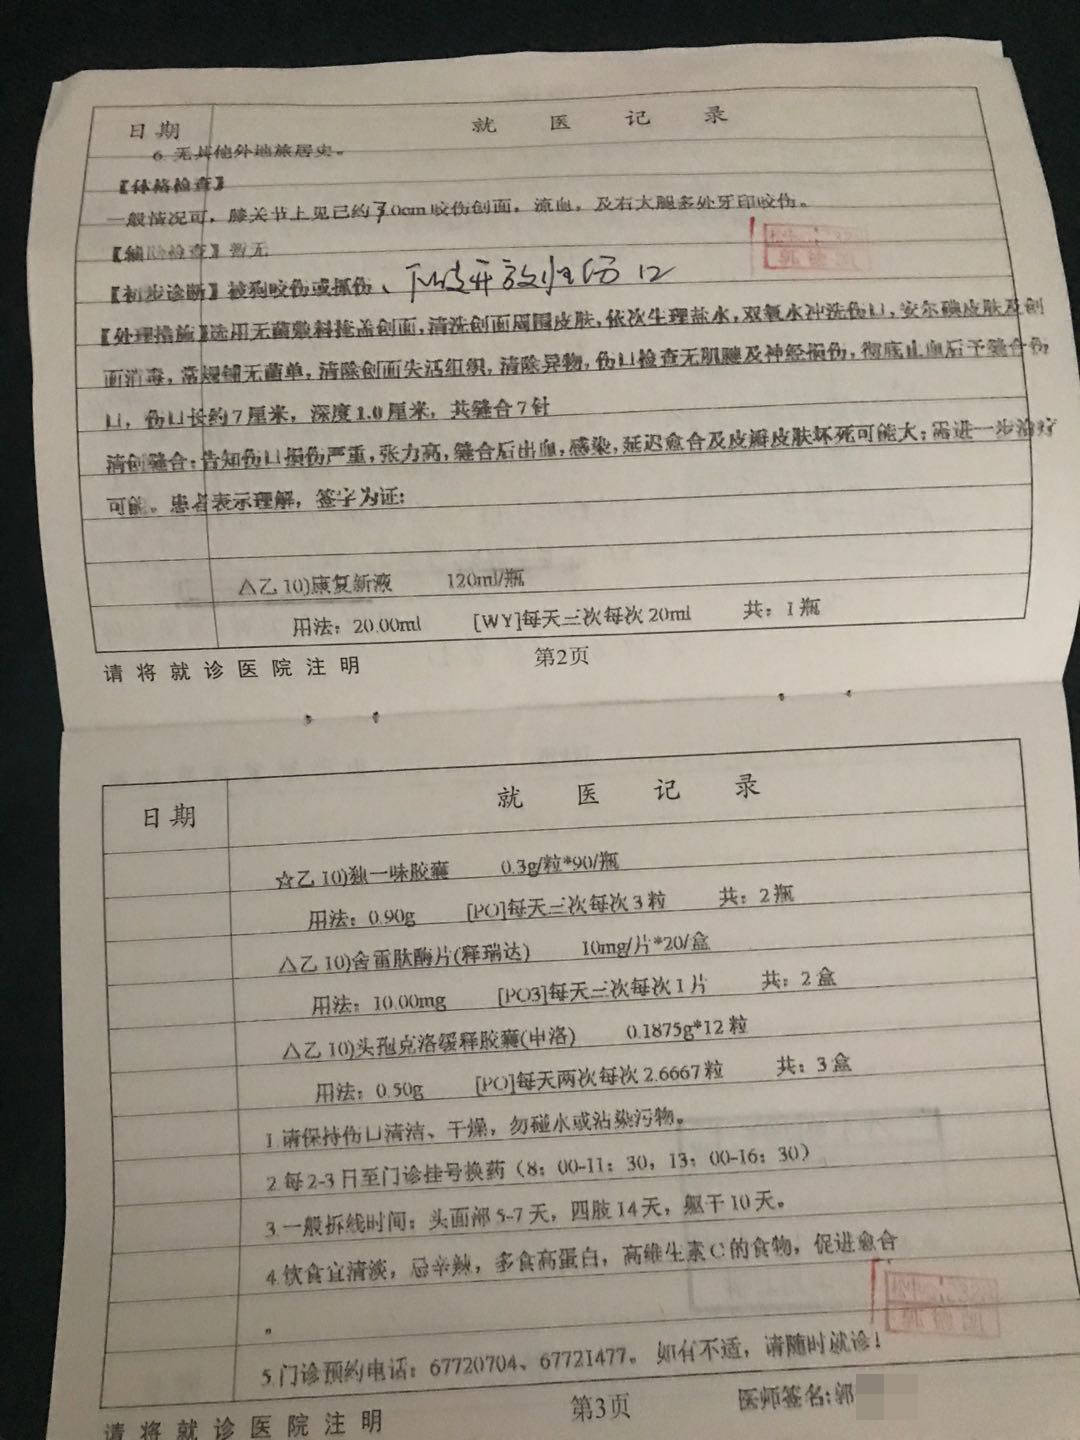 日期 就医记录
6. 无其他外地旅居史。
【体格检查】
一般情况可，膝关节上见已约7.0cm咬伤创面，流血，及右大腿多处牙印咬伤。
【辅助检查】暂无
【初步诊断】被狗咬伤或抓伤、下肢开放性伤口
【处理措施】选用无菌敷料掩盖创面，清洗创面周围皮肤，依次生理盐水，双氧水冲洗伤口，安尔碘皮肤及创
面消毒，常规铺无菌单，清除创面失活组织，清除异物，伤口检查无肌腱及神经损伤，彻底止血后予缝合伤
口，伤口长约7厘米，深度1.0厘米，共缝合7针
清创缝合：告知伤口损伤严重，张力高，缝合后出血，感染，延迟愈合及皮瓣皮肤坏死可能大；需进一步治疗
可能。患者表示理解，签字为证：
△乙10)康复新液 120ml/瓶
用法：20.00ml [WY]每天三次每次20ml 共：1瓶
请将就诊医院注明 第2页
日期 就医记录
☆乙10)独一味胶囊 0.3g/粒*90/瓶
用法：0.90g [PO]每天三次每次3粒 共：2瓶
△乙10)舍雷肽酶片(释瑞达) 10mg/片*20/盒
用法：10.00mg [PO3]每天三次每次1片 共：2盒
△乙10)头孢克洛缓释胶囊(申洛) 0.1875g*12粒
用法：0.50g [PO]每天两次每次2.6667粒 共：3盒
1.请保持伤口清洁、干燥，勿碰水或沾染污物。
2.每2-3日至门诊挂号换药（8：00-11：30，13：00-16：30）
3.一般拆线时间：头面部5-7天，四肢14天，躯干10天。
4.饮食宜清淡，忌辛辣，多食高蛋白，高维生素C的食物，促进愈合
。
5.门诊预约电话：67720704、67721477。如有不适，请随时就诊！
请将就诊医院注明 第3页 医师签名:郭